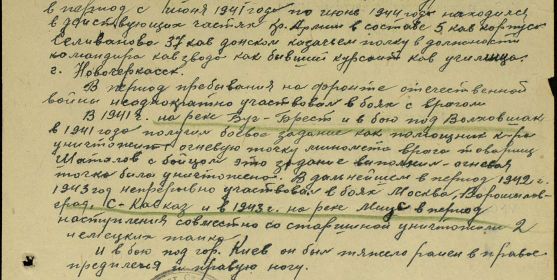 в период с 1 июня 1941 года по июнь 1944 года находился
в действующих частях Кр. Армии в составе 5 кав корпус
Селиванова 37 кав донском казачьем полку в должности
командира кав взвода как бывший курсант кав училища
г. Новочеркасск.
В период пребывания на фронте отечественной
войны неоднократно участвовал в боях с врагом
В 1941 г. на реке Буг-Брест и в бою под
в 1941 года получил боевое задание как помощник к-ра
уничтожить огневую точку миномета врага товарищ
Шаталов с бойцом это задание выполнил - огневая
точка была уничтожена. В дальнейшем в период 1942 г.
1943 год непрерывно участвовал в боях Москва, Ворошилов-
град, С-Кавказ и в 1943 г. на реке Миус в период
наступления совместно со старшиной уничтожили 2
немецких танка
И в бою под гор. Киев он был тяжело ранен в правое
предплечья и правую ногу.